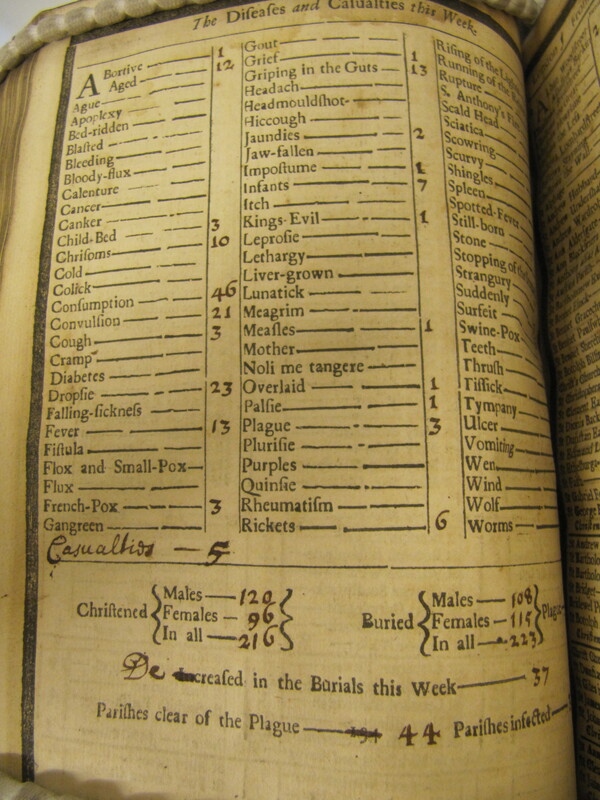 The Diſeaſes and Caſualties this Week.
Abortive 1
Aged 12
Ague
Apoplexy
Bed-ridden
Blaſted
Bleeding
Bloody-flux
Calenture
Cancer
Canker
Child-Bed 3
Chriſoms 10
Cold
Colick
Conſumption 46
Convulſion 21
Cough 3
Cramp
Diabetes
Dropſie 23
Falling-ſickneſs
Fever 13
Fiſtula
Flox and Small-Pox
Flux
French-Pox 3
Gangreen
Caſualties — 5
Gout
Grief 1
Griping in the Guts 13
Headach
Headmouldſhot
Hiccough
Jaundies 2
Jaw-fallen
Impoſtume 1
Infants 7
Itch
Kings-Evil 1
Leproſie
Lethargy
Liver-grown
Lunatick
Meagrim
Meaſles 1
Mother
Noli me tangere
Overlaid 1
Palſie 1
Plague 3
Pluriſie
Purples
Quinſie
Rheumatiſm
Rickets 6
Riſing of the
Running of the
Rupture
S. Anthony's
Scald Head
Sciatica
Scowring
Scurvy
Shingles
Spleen
Spotted-Fever
Still-born
Stone
Stopping of
Strangury
Suddenly
Surfeit
Swine-Pox
Teeth
Thruſh
Tiſſick
Tympany
Ulcer
Vomiting
Wen
Wind
Wolf
Worms
Chriſtened { Males — 120
Females — 96
In all — 216 }
Buried { Males — 108
Females — 115
In all — 223 } Plague
Decreaſed in the Burials this Week — 37
Pariſhes clear of the Plague — 44 Pariſhes infected